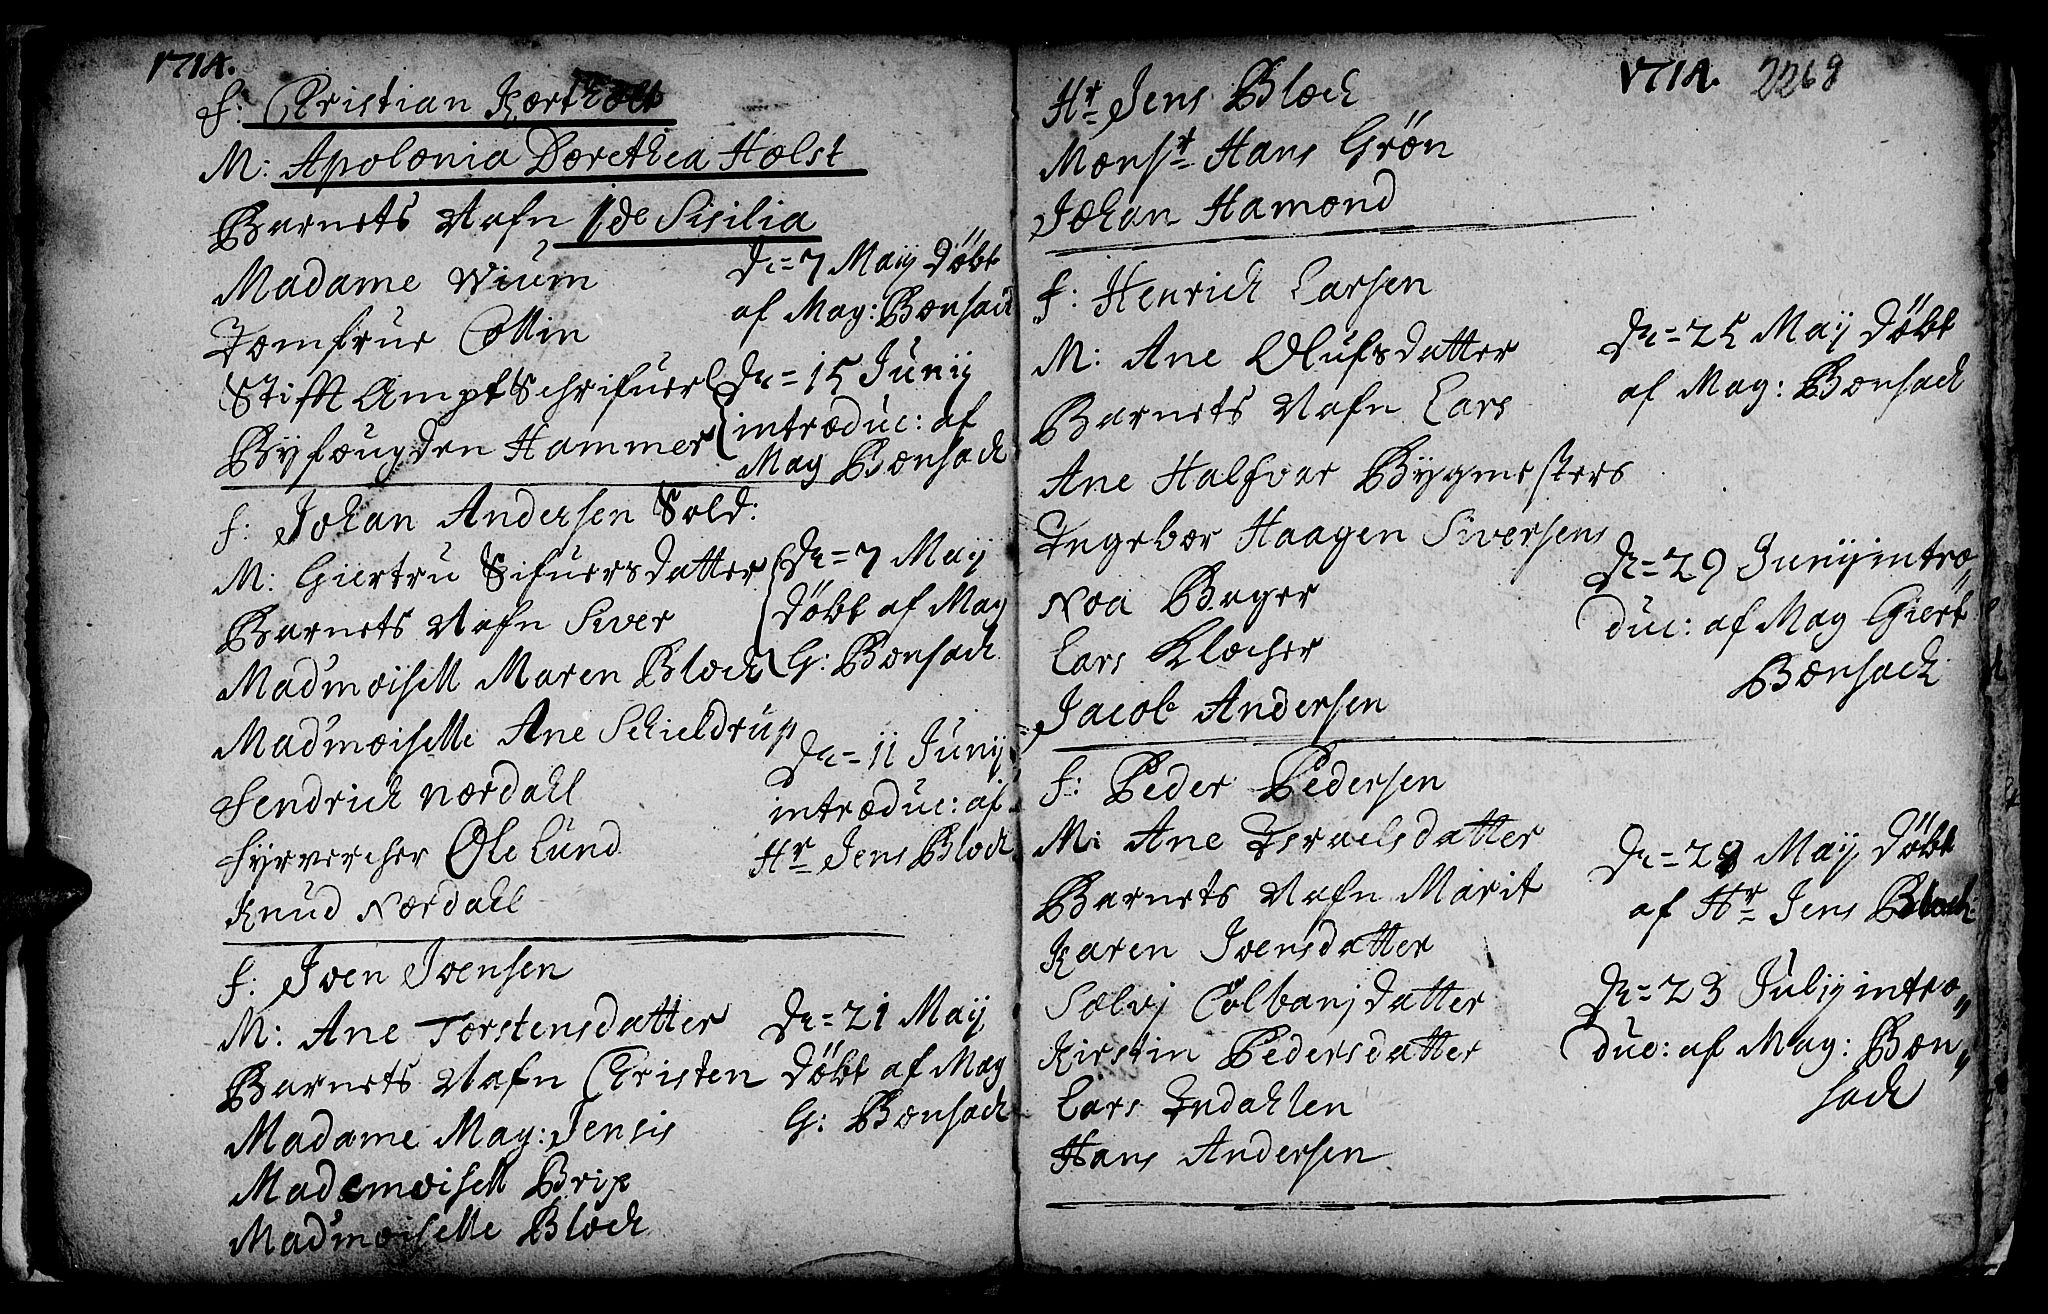 1714.
F: Christian Kortholt
M: Apolonia Dorethea Holst
Barnets Nafn Ide Sisilia
Madame Wium
Jomfrue Collin
Stifft Ampt Schrifuer
Byfougden Hammer
Dn = 7 Maij Døbt
af Mag: Bonsach
Dn = 15 Junij
introduc: af
Mag Bonsach
F: Johan Andersen Sold:
M: Giertru Sifuersdatter
Barnets Nafn Siver
Madmoisell Maren Bloch
Madmoiselle Ane Schieldrup
Fendrich Nordahl
Fyrvercher Ole Lund
Knud Nordahl
Dn = 7 Maij
Døbt af Mag
G: Bonsach
Dn = 11 Junij
introduc: af
Hr Jens Bloch
F: Iven Ivensen
M: Ane Torstensdatter
Barnets Nafn Christen
Madame Mag: Jensis
Mademoisell Brix
Madmoiselle Bloch
Dn = 21 Maij
Døbt af Mag
G: Bonsach
1714. 2268
Hr Jens Bloch
Monsr Hans Grøn
Johan Hamond
F: Henrich Larsen
M: Ane Olufsdatter
Barnets Nafn Lars
Ane Halfvar Bygmesters
Ingebor Haagen Siversens
Noa Bager
Lars Klocher
Jacob Andersen
Dn = 25 Maij Døbt
af Mag: Bonsach
Dn = 29 Junij intro„
duc: af Mag Giert
Bonsach
F: Peder Pedersen
M: Ane Israelsdatter
Barnets Nafn Marit
Karen Ivensdatter
Solvj Colbanjdatter
Kirstin Pedersdatter
Lars Indahlen
Hans Andersen
Dn = 28 Maij Døbt
af Hr Jens Bloch
Dn = 23 Julij intro„
duc: af Mag: Bon„
sach